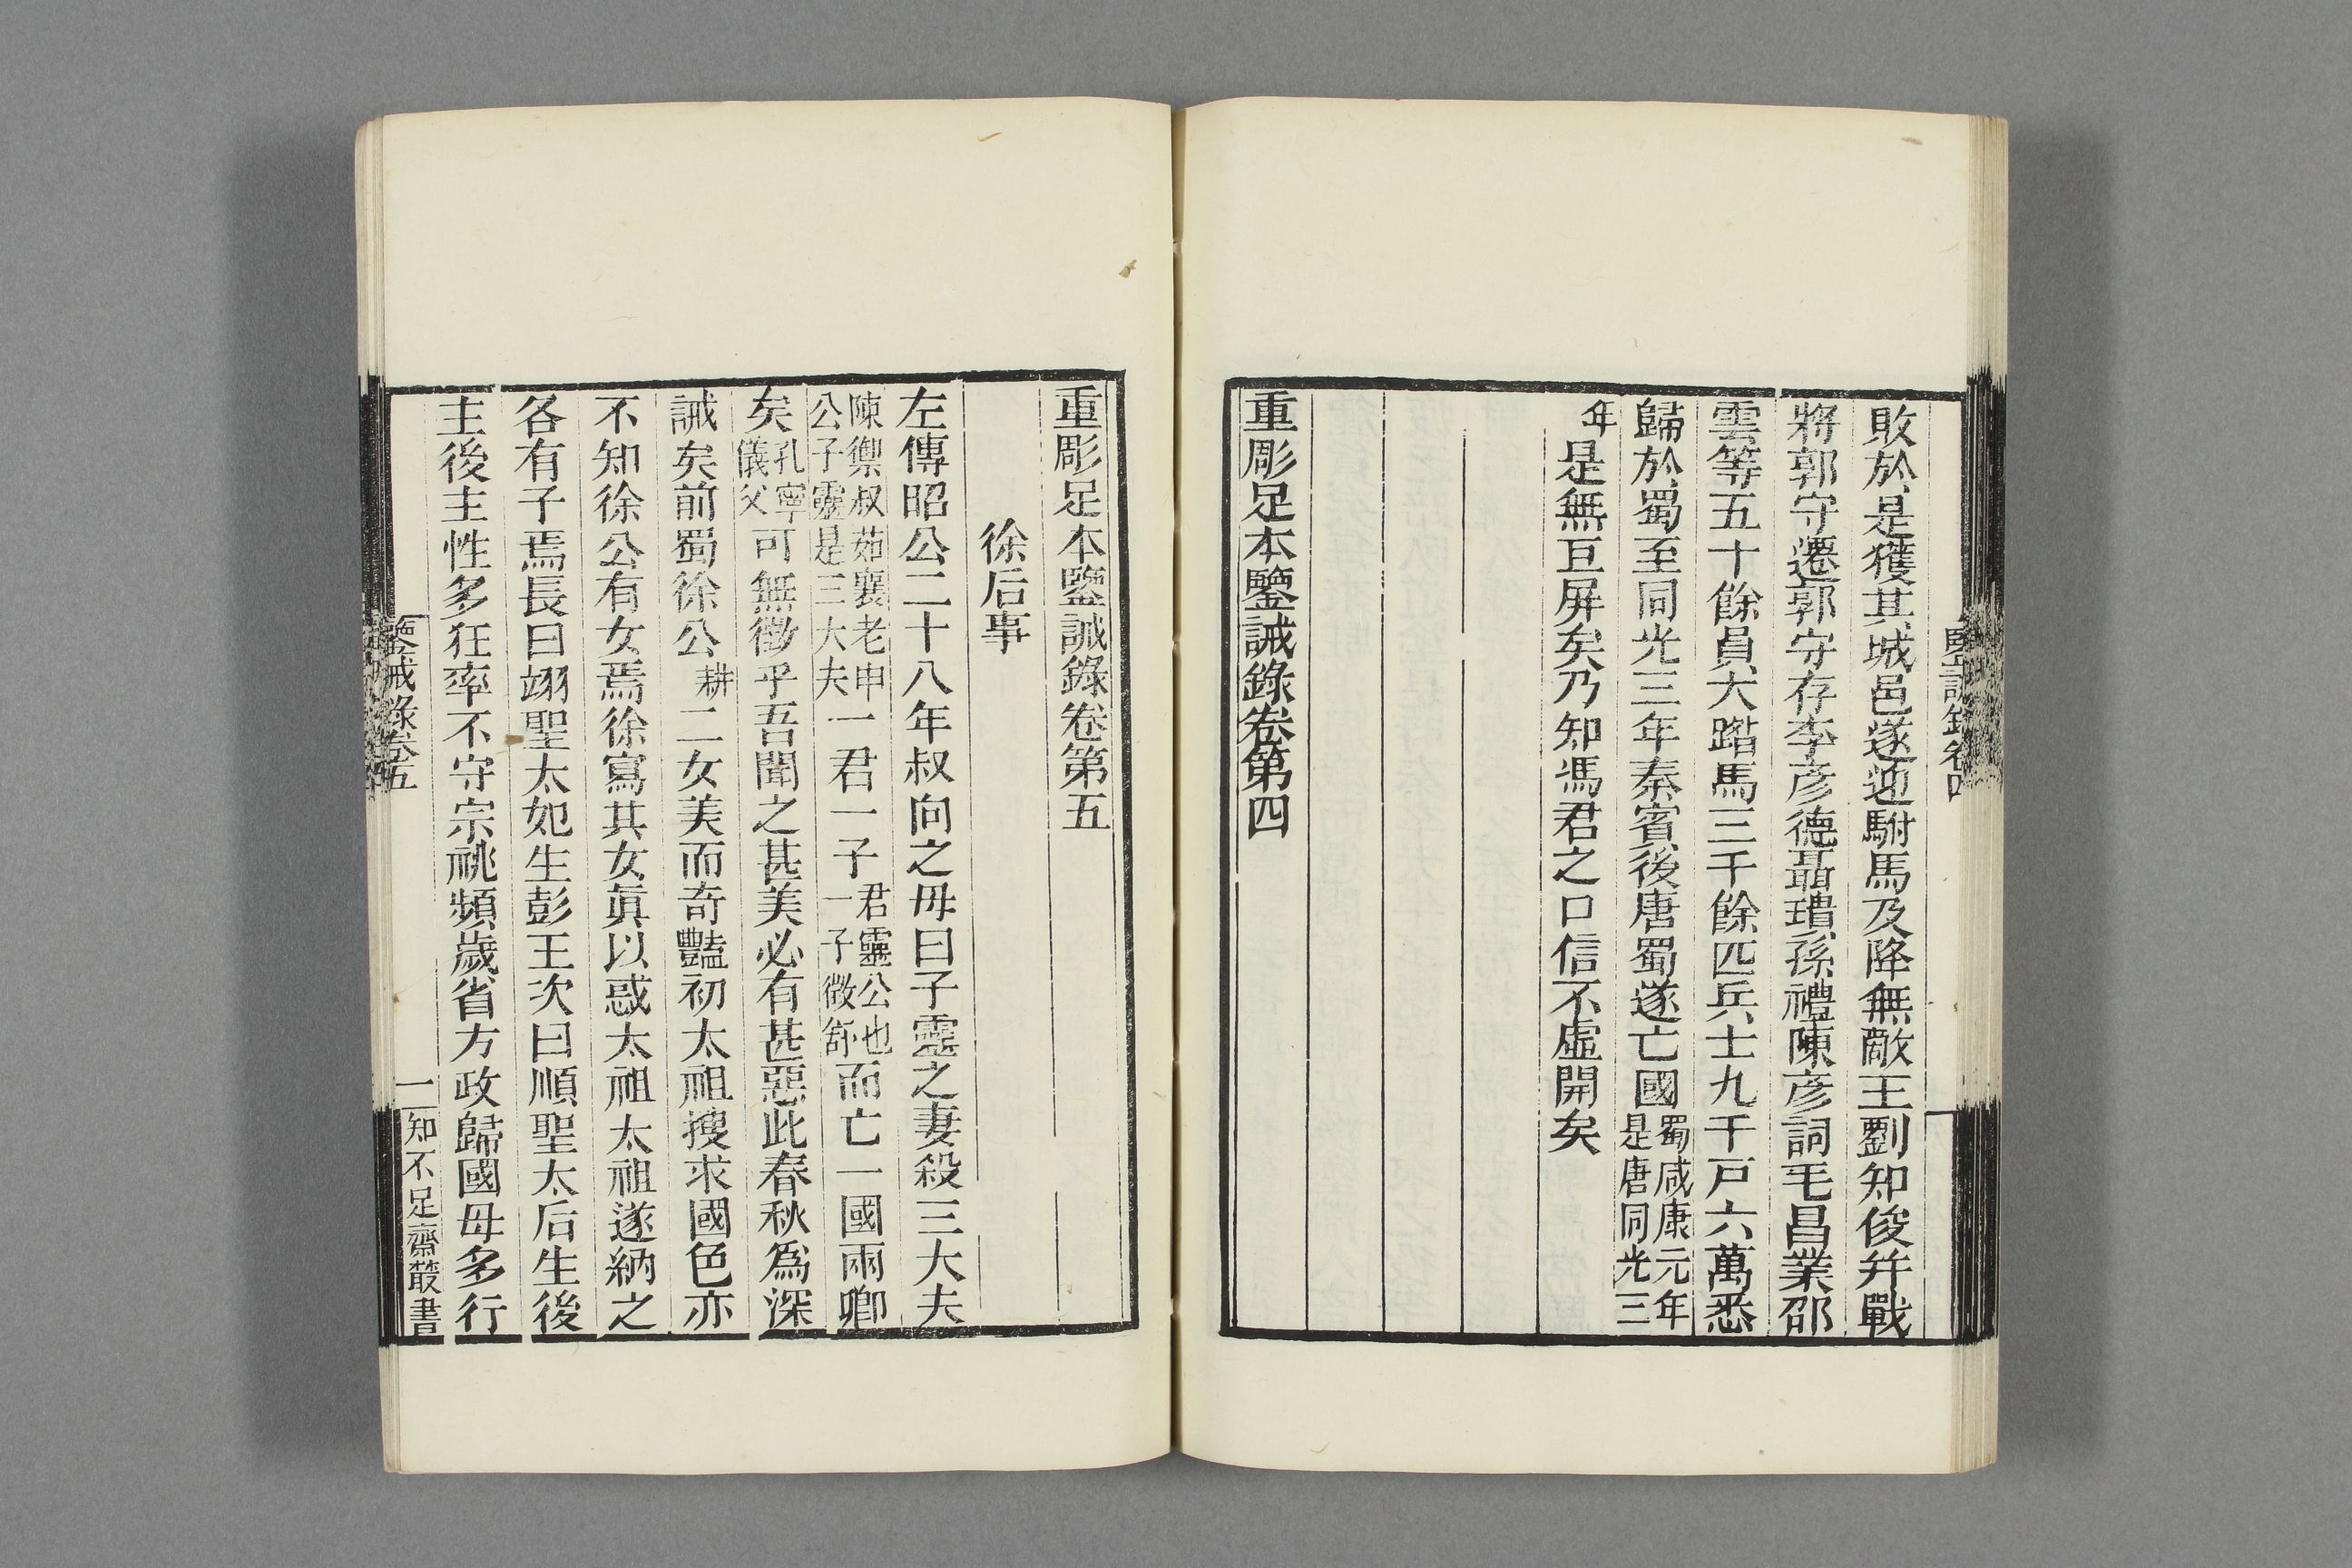 敗於是獲其城邑遂迎駙馬及降無敵王劉知俊并戰
將郭守遷郭守存李彦德聶瓌孫禮陳彦詞毛昌業邵
雲等五十餘員大踏馬三千餘匹兵士九千戸六萬悉
歸於蜀至同光三年秦賓後唐蜀遂亡國蜀咸康元年是唐同光三
年是無亘屏矣乃知馮君之口信不虛開矣
重彫足本鑒誡錄卷第四
重彫足本鑒誡錄卷第五
徐后事
左傳昭公二十八年叔向之母曰子靈之妻殺三大夫
陳禦叔茹襄老申公子靈是三大夫一君一子君靈公也一子徵舒而亡一國兩卿
矣孔寧儀父可無徵乎吾聞之甚美必有甚惡此春秋爲深
誡矣前蜀徐公耕二女美而奇豔初太祖搜求國色亦
不知徐公有女焉徐寫其女眞以惑太祖太祖遂納之
各有子焉長曰翊聖太妃生彭王次曰順聖太后生後
主後主性多狂率不守宗祧頻歲省方政歸國母多行
鑒誡錄卷五
一
知不足齋叢書